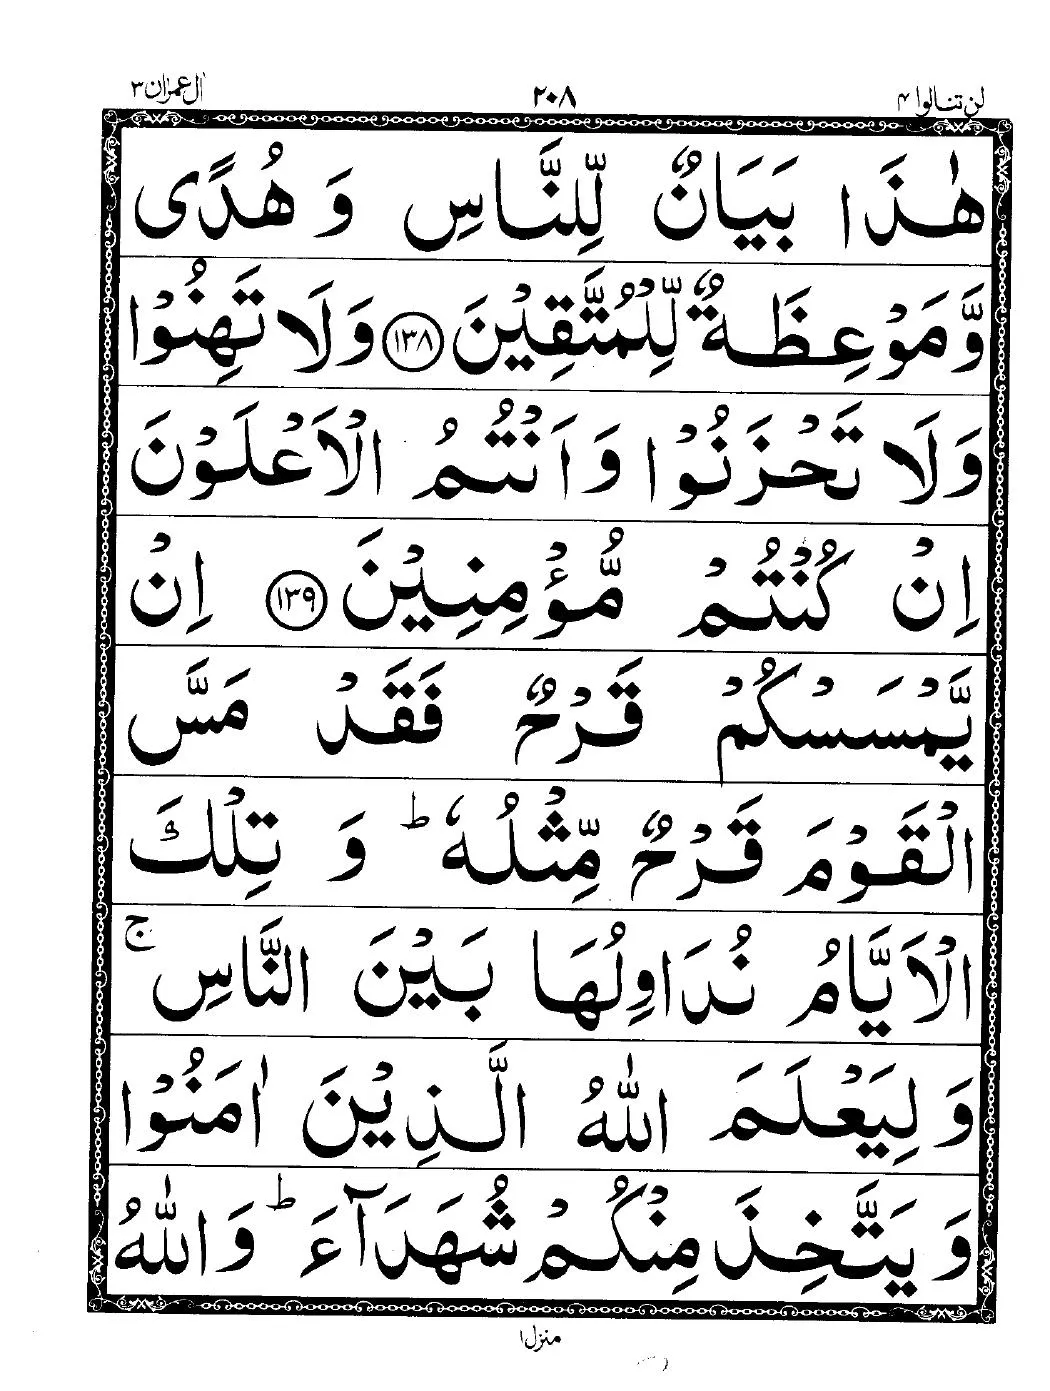 لن تنالوا ۴ ۲۰۸ اٰل عمرٰن ۳
هٰذَا بَيَانٌ لِّلنَّاسِ وَ هُدًى
وَّ مَوْعِظَةٌ لِّلْمُتَّقِيْنَ ﴿۱۳۸﴾ وَلَا تَهِنُوْا
وَلَا تَحْزَنُوْا وَاَنْتُمُ الْاَعْلَوْنَ
اِنْ كُنْتُمْ مُّؤْمِنِيْنَ ﴿۱۳۹﴾ اِنْ
يَّمْسَسْكُمْ قَرْحٌ فَقَدْ مَسَّ
الْقَوْمَ قَرْحٌ مِّثْلُهٗ ؕ وَ تِلْكَ
الْاَيَّامُ نُدَاوِلُهَا بَيْنَ النَّاسِ ۚ
وَ لِيَعْلَمَ اللّٰهُ الَّذِيْنَ اٰمَنُوْا
وَ يَتَّخِذَ مِنْكُمْ شُهَدَآءَ ؕ وَاللّٰهُ
منزل ۱